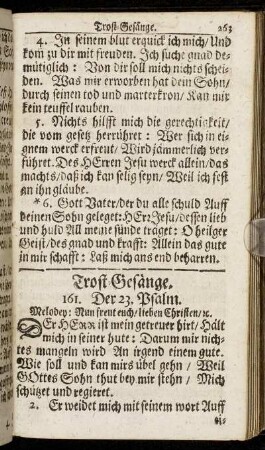 Trost-Gesänge. 263
4. In seinem blut erquick ich mich/ Und
kom zu dir mit freuden. Ich suche gnad de-
mütiglich: Von dir soll mich nichts schei-
den. Was mir erworben hat dein Sohn/
durch seinen tod und marterkron/ Kan mir
kein teuffel rauben.
5. Nichts hilfft mich die gerechtigkeit/
die vom gesetz herrühret: Wer sich in eig-
nem werck erfreut/ Wird jämmerlich ver-
führet. Des HErren Jesu werck allein/ das
machts/ daß ich kan selig seyn/ Weil ich fest
an ihn gläube.
*6. Gott Vater/ der du alle schuld Auff
deinen Sohn geleget: HErr Jesu/ dessen lieb
und huld All meine sünde träget: O heilger
Geist/ des gnad und krafft: Allein das gute
in mir schafft: Laß mich ans end beharren.
Trost-Gesänge.
161. Der 23. Psalm.
Melodey: Nun freut euch/ lieben Christen/ ꝛc.
DEr HERR ist mein getreuer hirt/ Hält
mich in seiner hute: Darum mir nich-
tes mangeln wird An irgend einem gute.
Wie soll und kan mirs übel gehn/ Weil
GOttes Sohn thut bey mir stehn/ Mich
schützet und regieret.
2. Er weidet mich mit seinem wort Auff